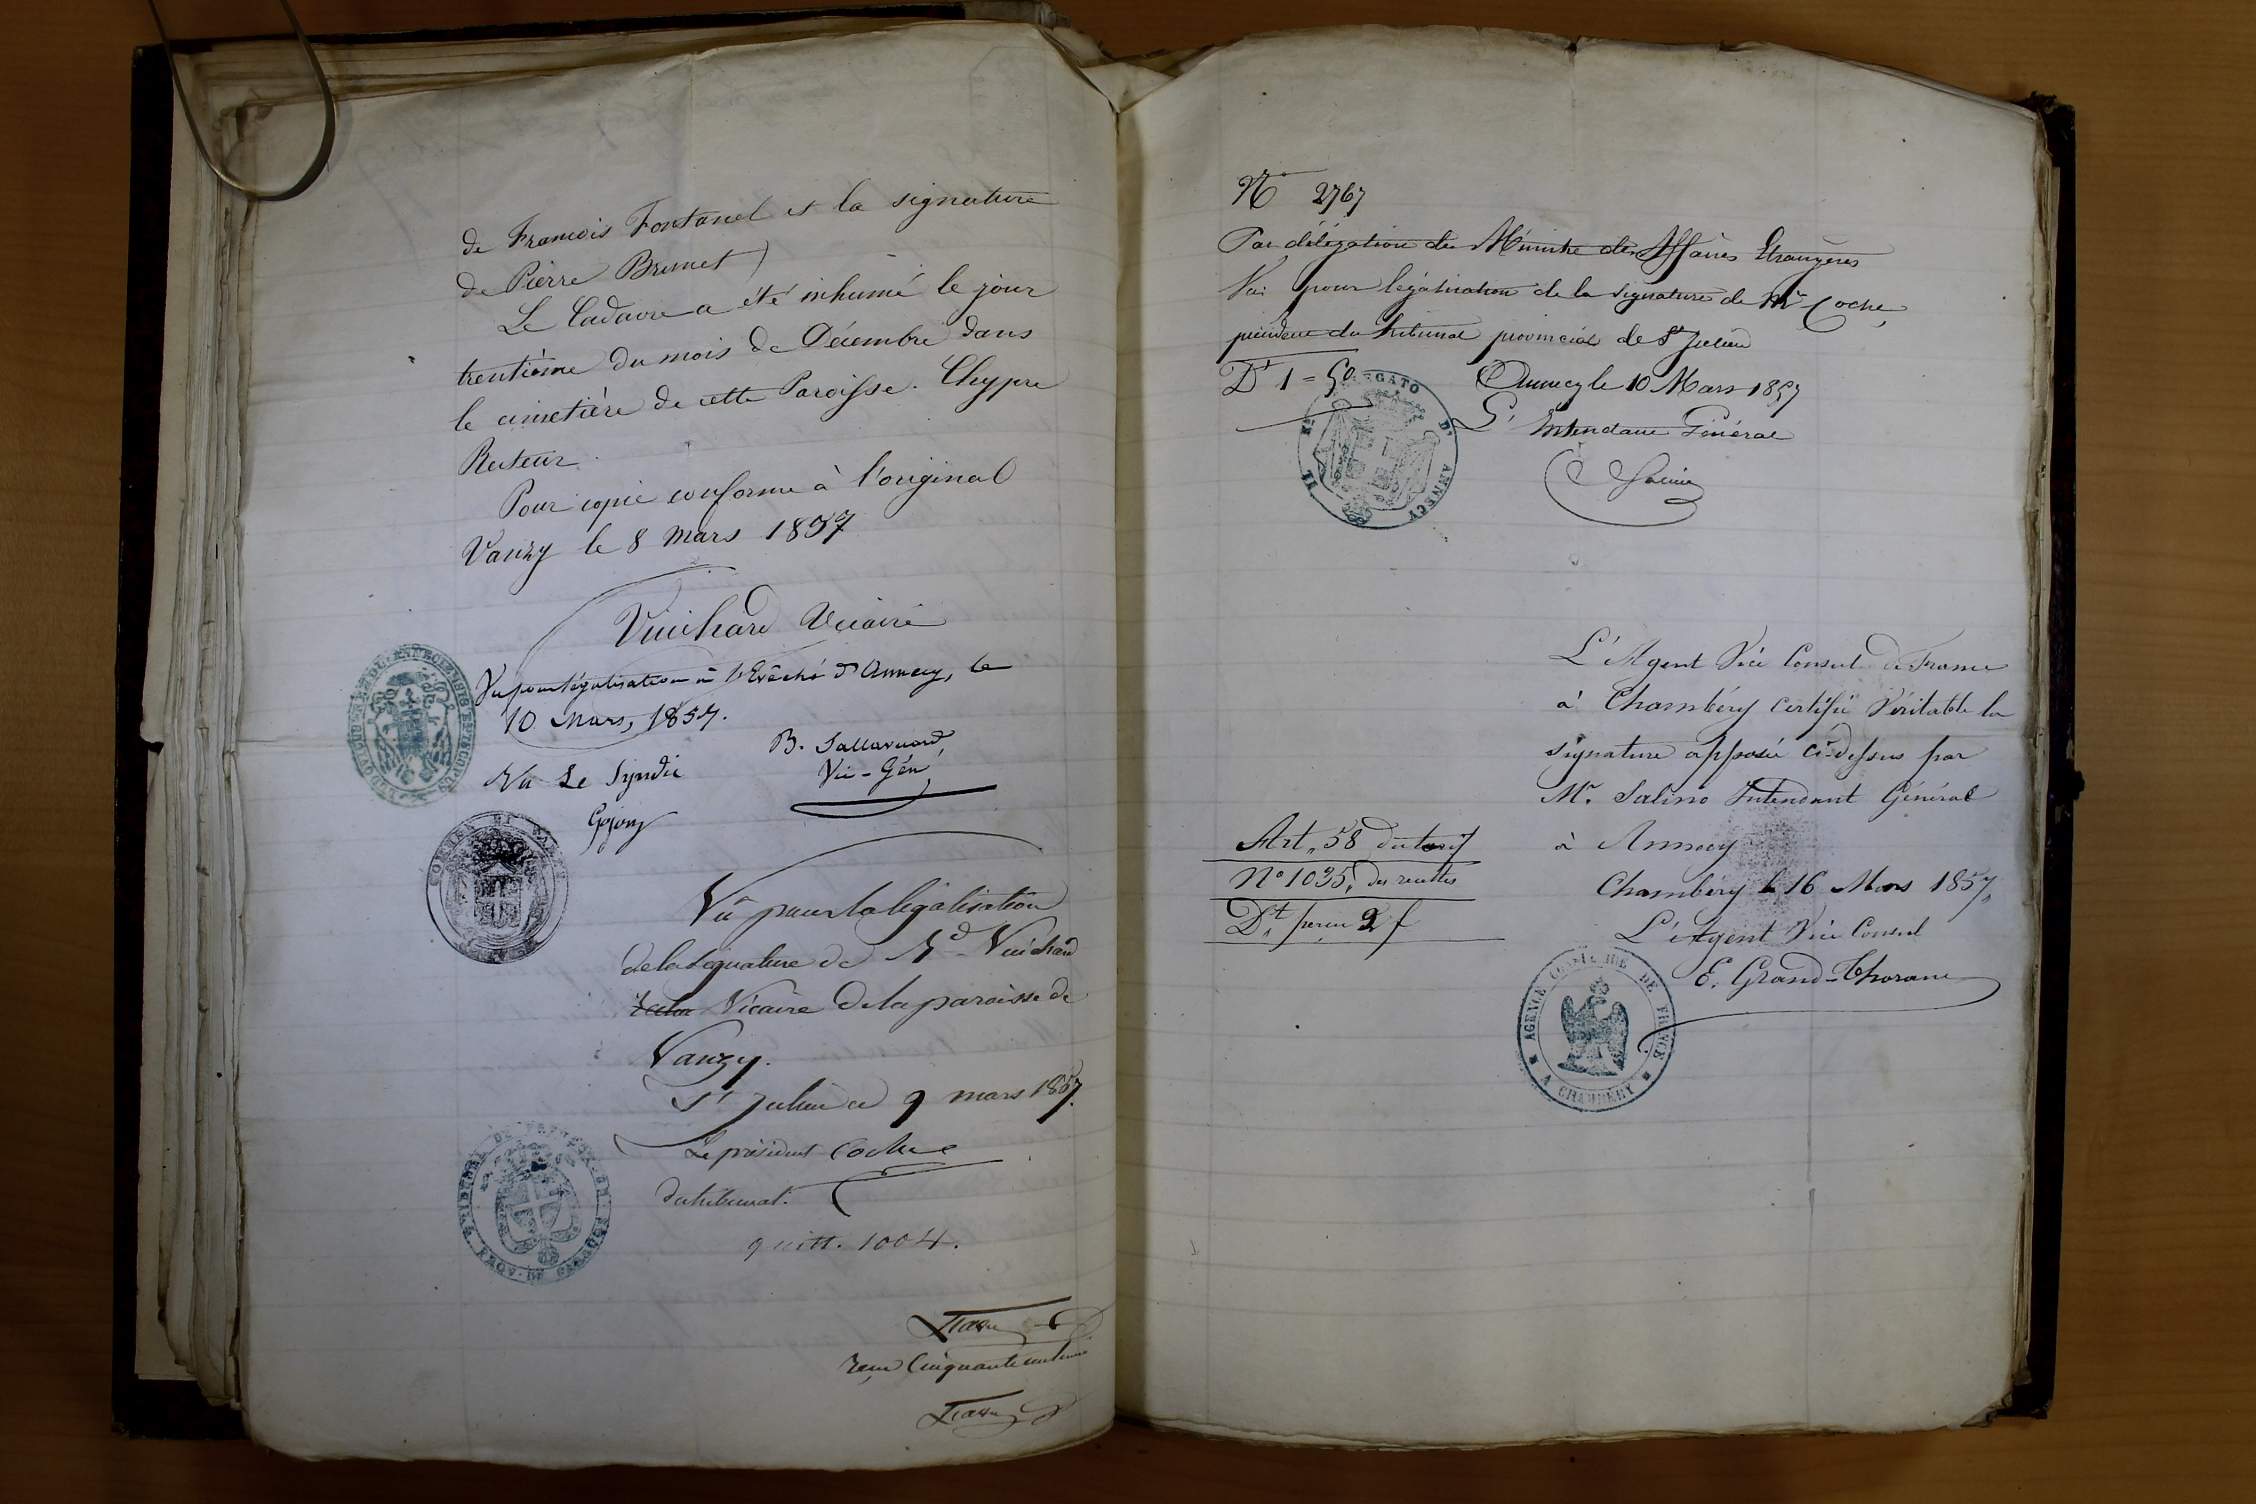 de Francois Fontanel et la signature
de Pierre Brunet)
Le Cadavre a été inhumé le jour
trentième du mois de Décembre dans
le cimetière de cette Paroisse. Chypre
Recteur.
Pour copie conforme à l'original
Vanzy le 8 mars 1857
Vuichard Vicaire
Vu pour légalisation à l'Evêché d'Annecy, le
10 Mars, 1857.
B. Sallavuard,
Vic-Gén
Vu Le Syndic
Gojon
Vu pour la légalisation
de la signature de Rd Vuichard
Vicaire de la paroisse de
Vanzy.
St Julien ce 9 mars 1857.
Le président Coche
du tribunal.
quitt. 1004.
reçu Cinquante centimes
No 2767
Par délégation du Ministre des Affaires Etrangères
Vu pour légalisation de la signature de Mr Coche,
président du tribunal provincial de St Julien
Dt 1=50
Annecy le 10 Mars 1857
L'Intendant Général
Salino
L'Agent Vice Consul de France
à Chambéry certifie Véritable la
signature apposée ci-dessus par
Mr. Salino Intendant Général
à Annecy
Chambéry le 16 Mars 1857,
L'Agent Vice Consul
E. Grand-Thorane
Art. 58 du tarif
No 1035, des recettes
Dt perçu 2 f
AGENCE CONSULAIRE DE FRANCE
A CHAMBÉRY